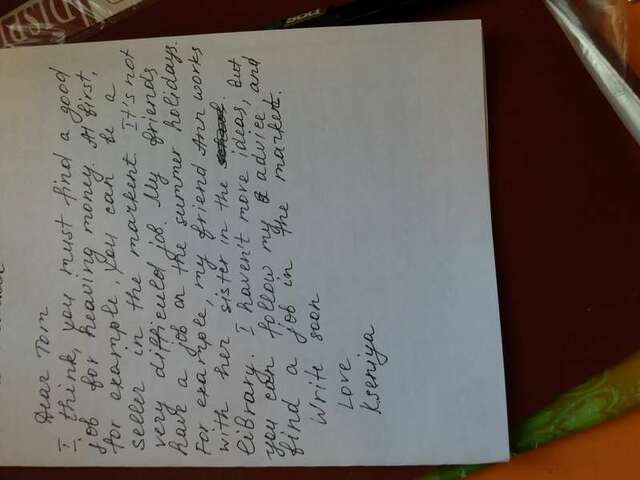 Dear Tom
I think, you must find a good
job for heaving money. At first,
for example, you can be a
seller in the markent. It's not
very difficuld job. My friends
have a job on the summer holidays.
For example, my friend Ann works
with her sister in the
library. I haven't move ideas, but
you can follow my advice and
find a job in the market.
Write soon
Love
Kseniya
DISP